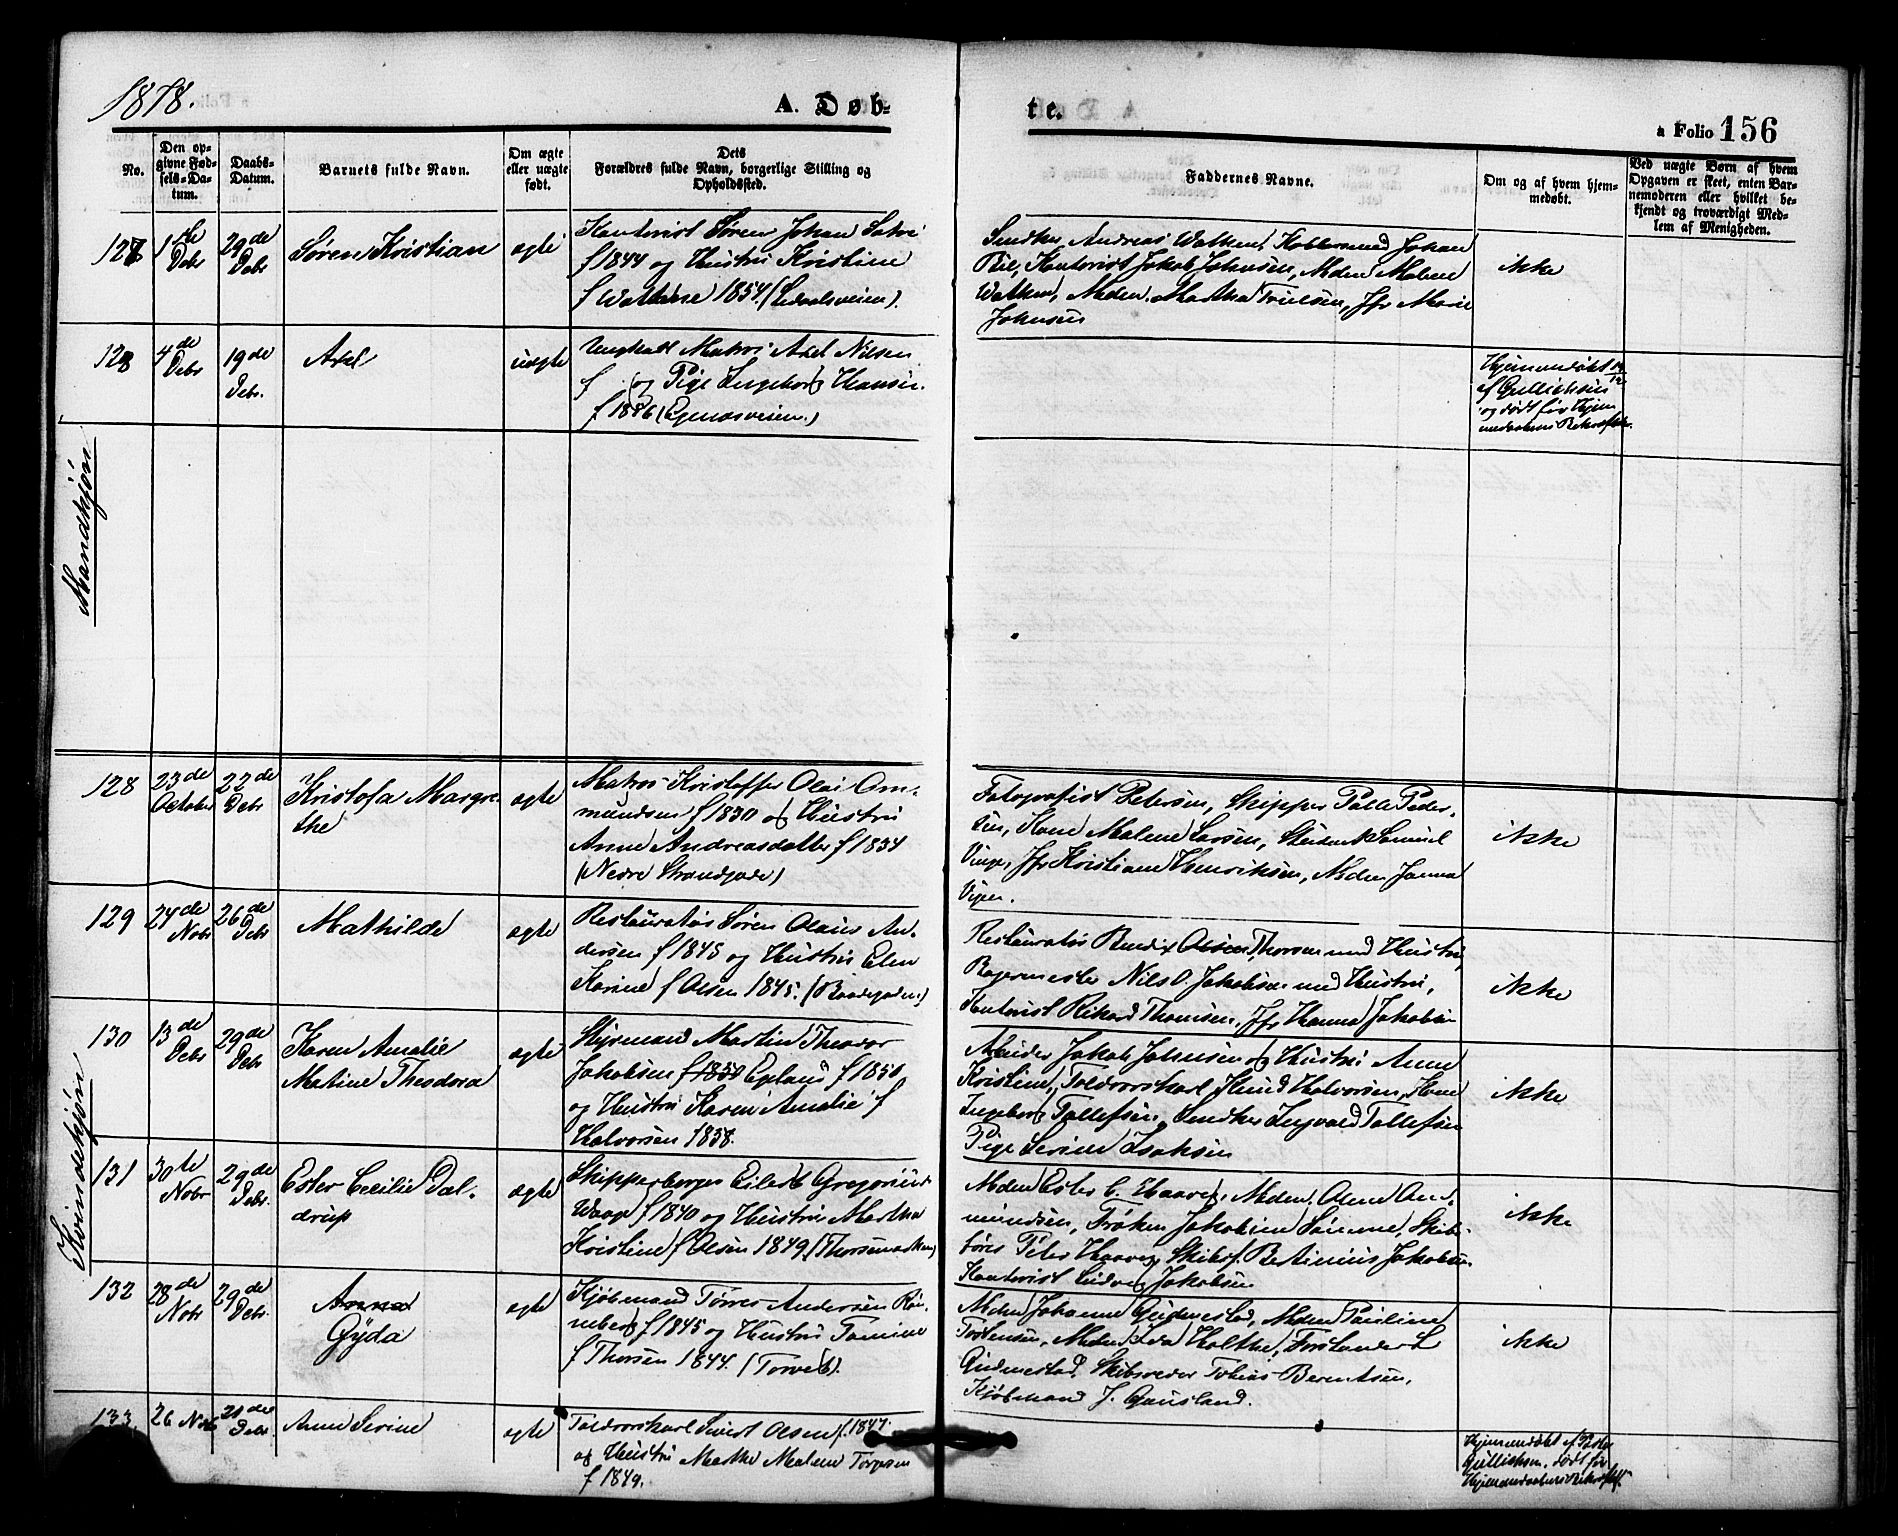 1878.
A. Døb-
te.
a Folio 156
No.
Den op-
givne Fød-
sels-Da-
tum.
Daabs-
Datum.
Barnets fulde Navn.
Om ægte
eller uægte
født.
Dets
Forældres fulde Navn, borgerlige Stilling og
Opholdssted.
Faddernes Navne.
Om og af hvem hjem-
medøbt.
Ved uægte Børn af hvem
Opgaven er skeet, enten Bar-
nemoderen eller hvilket be-
kjendt og troværdigt Med-
lem af Menigheden.
127
1ste
Debr
29de
Debr
Søren Kristian
ægte
Kontorist Søren Johan
f 1844 og Hustru Kristine
f Watne 1854. (Ledaalsveien).
Snedker Andreas Watne, Kobbersmed Johan
Kontorist Jakob Johnsen, Mdm Malene
Watne, Mdm. Martha Jfr Marie
Johnsen
ikke
128
4de
Debr
19de
Debr.
Axel
uægte
Ungkarl Matros Axel Nilsen
f og Pige Ingeborg Hansen
f 1856 (Egenæsveien.)
Hjemmedøbt
af Gullichsen
og død før Hjem-
medaabens
Mandkjøn
128
23de
October
22de
Debr
Kristofa Margre-
the
ægte
Matros Kristoffer Olai Om-
mundsen f 1830 og Hustru
Anne Andreasdatter f 1834
(Nedre Strandgade)
Fotografist Petersen, Skipper Palle Peder-
sen, Kone Malene Larsen, Student Samuel
Jfr Kristiane Henriksen, Mdm Janna
ikke
129
24de
Nobr
26de
Debr
Mathilde
ægte
Restauratør Søren Olaus An-
dersen f 1845 og Hustru Elen
Karine f Olsen 1845.
Restauratør Olsen Thorsen med Hustru,
Bagermester Nils Jakobsen med Hustru,
Kontorist Rikard Thomsen, Jfr Hanna Jakobsen
ikke
130
13de
Debr
29de
Debr
Karen Amalie
Matine Theodora
ægte
Styrmand Martin Theodor
Jakobsen f 1850
og Hustru Karen Amalie f
Halvorsen 1858.
Arbeider Jakob Johnsen og Hustru Anne
Kristine, Toldrorskarl Halvorsen, Kone
Ingeborg Tollefsen, Snedker Ingvald Tollefsen
Pige Serine Isaksen
ikke
Kvindekjøn
131
30te
Nobr
29de
Debr.
Ester Cecilie Dal-
drup
ægte
Skipperborger Eilert Gregorius
Waage f 1840 og Hustru Martha
Kristine f Olsen 1849 (Thorsmarken)
Mdm Ester C. Haaver, Mdm. Olene Om-
mundsen, Frøken Jakobine Sømme, Skibs-
fører Peter Haaver, Skibsf. Bertinius Jakobsen
Kontorist Ludvig Jakobsen
ikke
132
28de
Nobr
29de
Debr.
Anna
Gyda
ægte
Kjøbmand Tørres Andersen Røn-
neberg f 1845 og Hustru Tomine
f Thorsen 1844. (Torvet).
Mdm Johanne Gudmestad, Mdm Pauline
Torstensen, Mdm Ida Holthe, Forstander L
Gudmestad, Skibsreder Tobias Berentsen,
Kjøbmand J. Gausland.
ikke
133
26 Nobr
21de
Debr.
Anne Serine
ægte
Toldrorskarl Sivert Olsen f. 1847.
og Hustru Marthe Malene Torgersen
f 1849.
Hjemmedøbt af Pastor
Gullichsen, død før
Hjemmedaabens